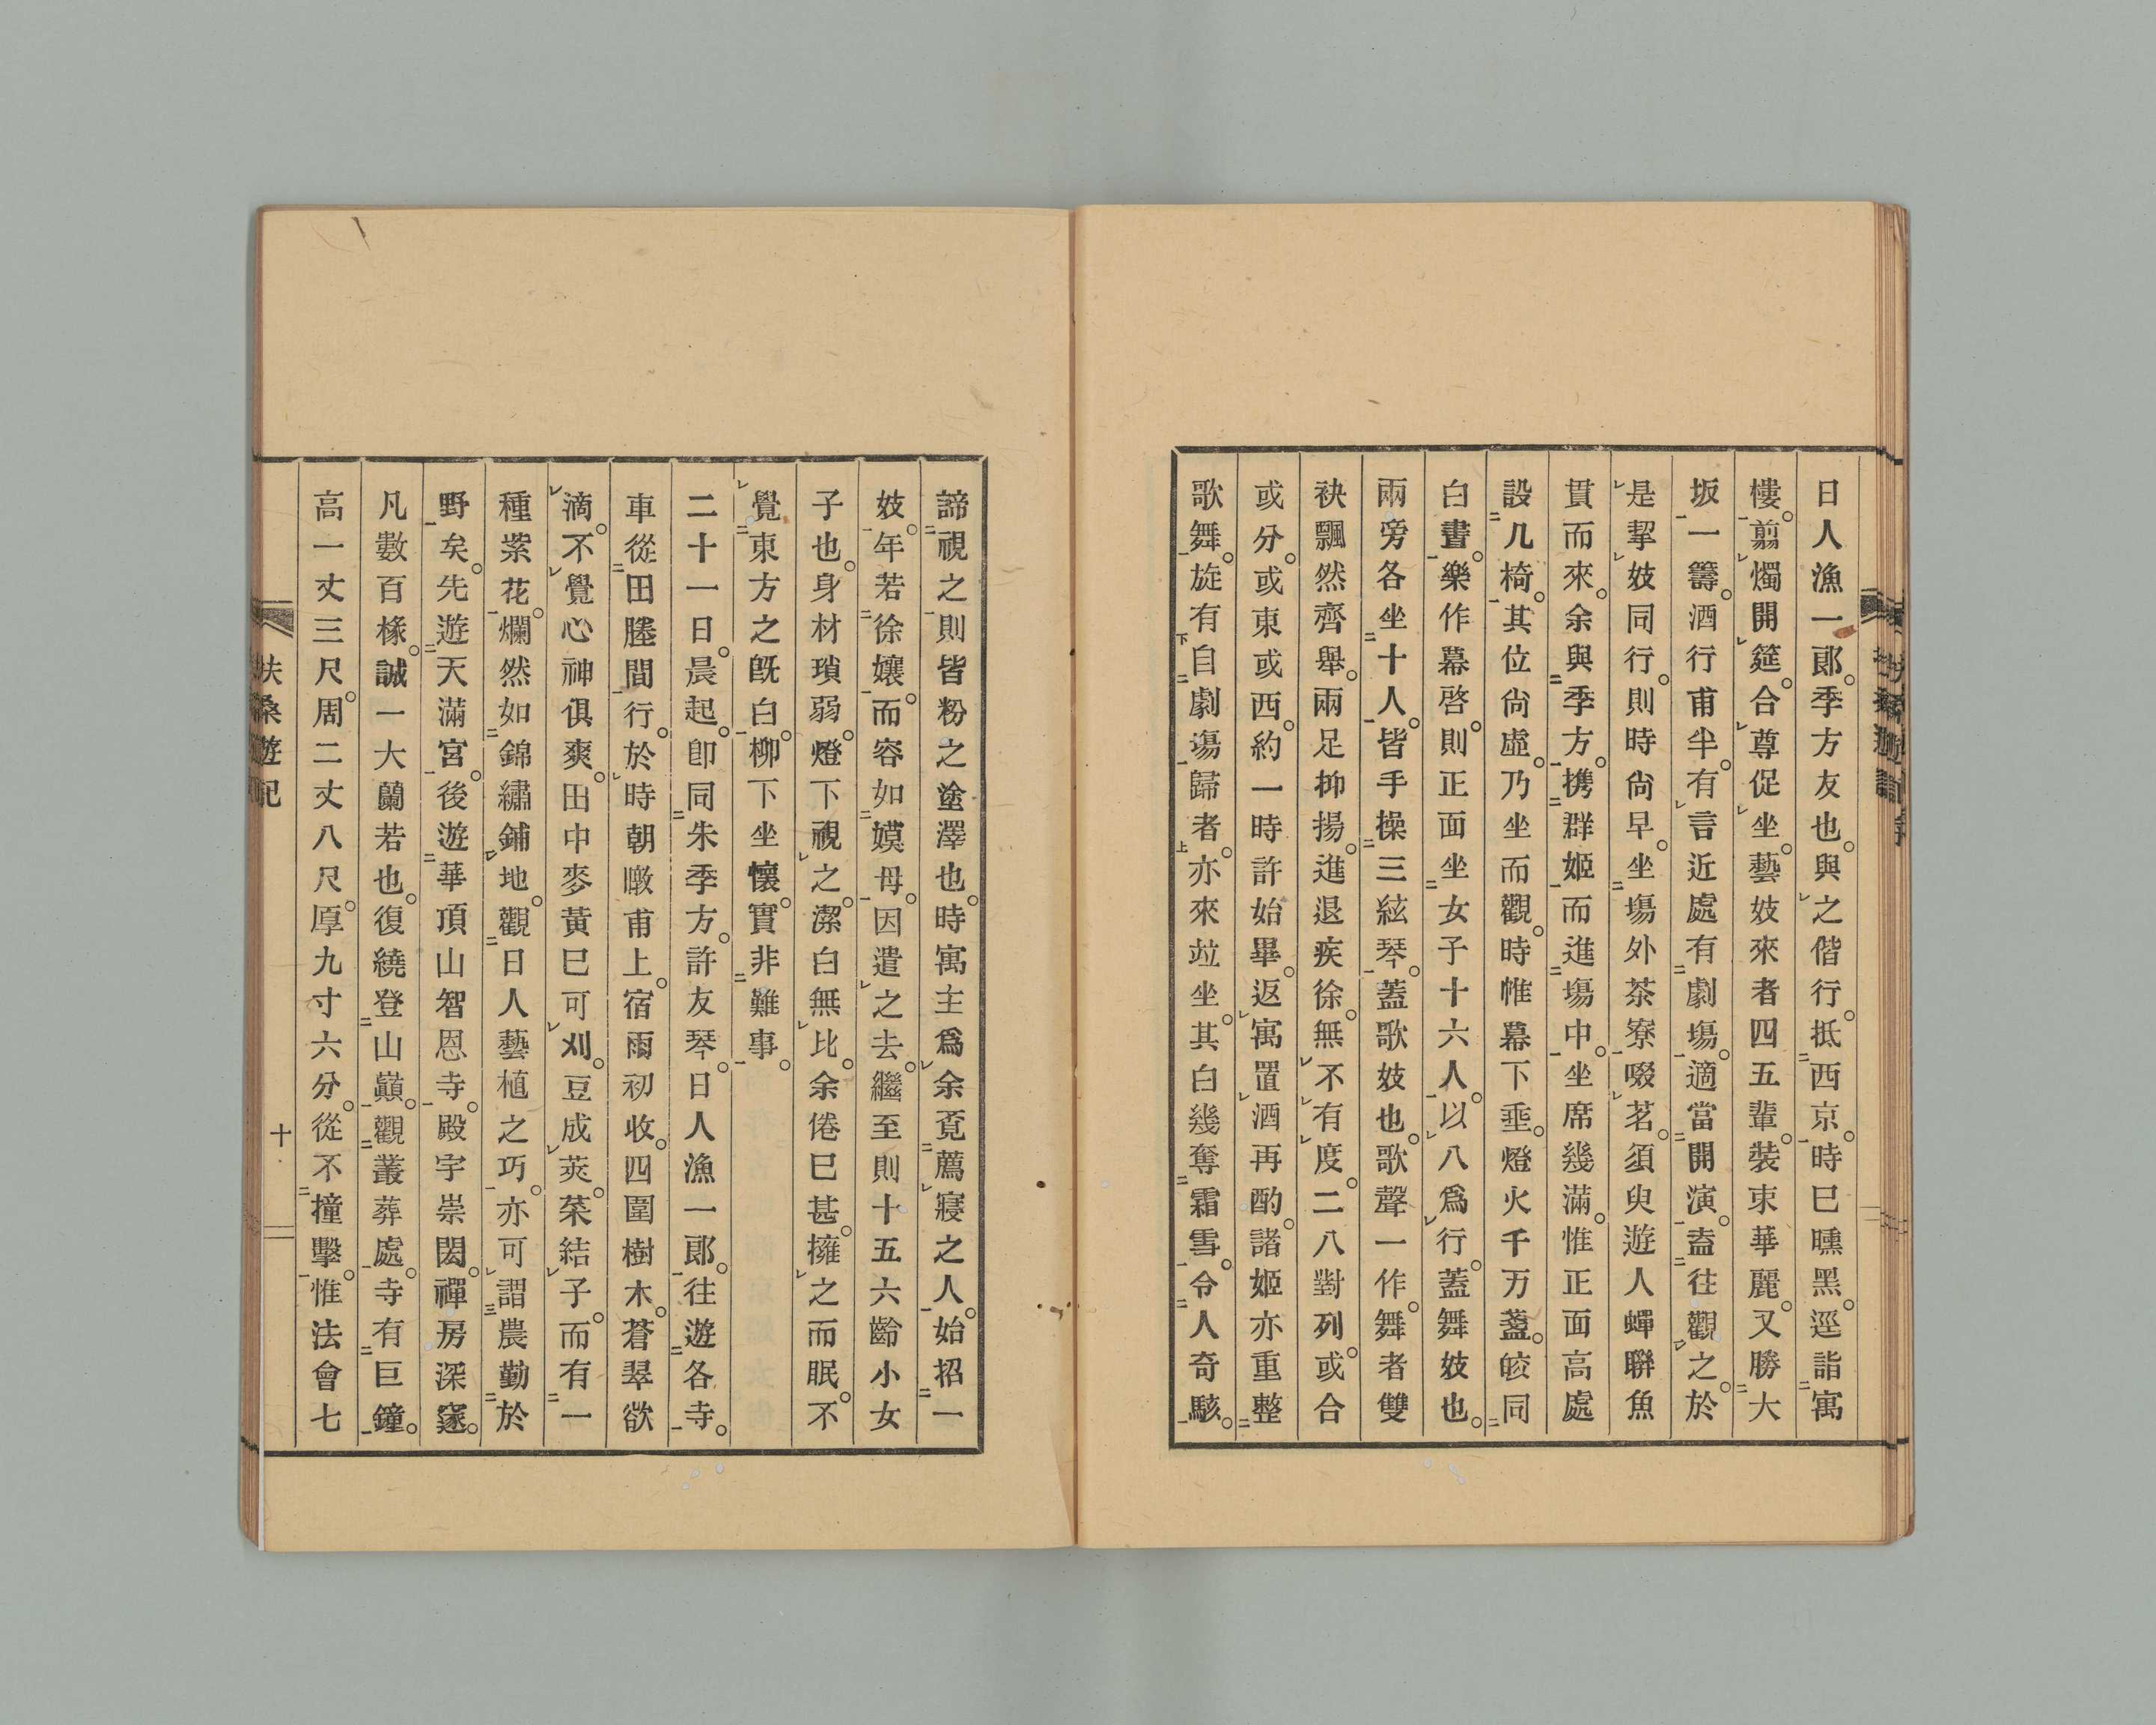 日人漁一郞。季方友也。與之偕行。抵西京。時巳曛黑。逕詣寓
樓。翦燭開筵。合尊促坐。藝妓來者四五輩。裝束華麗。又勝大
坂一籌。酒行甫半。有言近處有劇塲。適當開演。盍往觀之。於
是挈妓同行。則時尙早。坐塲外茶寮啜茗。須臾遊人蟬聯魚
貫而來。余與季方。携群姬而進塲中。坐席幾滿。惟正面高處
設几椅。其位尙虛。乃坐而觀。時帷幕下垂。燈火千万盞。皎同
白晝。樂作幕啓。則正面坐女子十六人。以八爲行。蓋舞妓也。
兩旁各坐十人。皆手操三絃琴。蓋歌妓也。歌聲一作。舞者雙
袂飄然齊舉。兩足抑揚。進退疾徐。無不有度。二八對列。或合
或分。或東或西。約一時許始畢。返寓置酒再酌。諸姬亦重整
歌舞。旋有自劇塲歸者。亦來竝坐。其白幾奪霜雪。令人奇駭。
諦視之則皆粉之塗澤也。時寓主爲余覓薦寢之人。始招一
妓。年若徐孃。而容如嫫母。因遣之去。繼至則十五六齡小女
子也。身材瑣弱。燈下視之。潔白無比。余倦巳甚。擁之而眠。不
覺東方之旣白。柳下坐懷。實非難事。
二十一日。晨起。卽同朱季方。許友琴。日人漁一郞。往遊各寺。
車從田塍間行。於時朝暾甫上。宿雨初收。四圍樹木。蒼翠欲
滴。不覺心神俱爽。田中麥黃巳可刈。豆成莢。菜結子。而有一
種紫花。爛然如錦繡鋪地。觀日人藝植之巧。亦可謂農勤於
野矣。先遊天滿宮。後遊華頂山智恩寺。殿宇崇閎。禪房深邃。
凡數百椽。誠一大蘭若也。復繞登山巔。觀叢葬處。寺有巨鐘。
高一丈三尺。周二丈八尺。厚九寸六分。從不撞擊。惟法會七
扶桑遊記
十